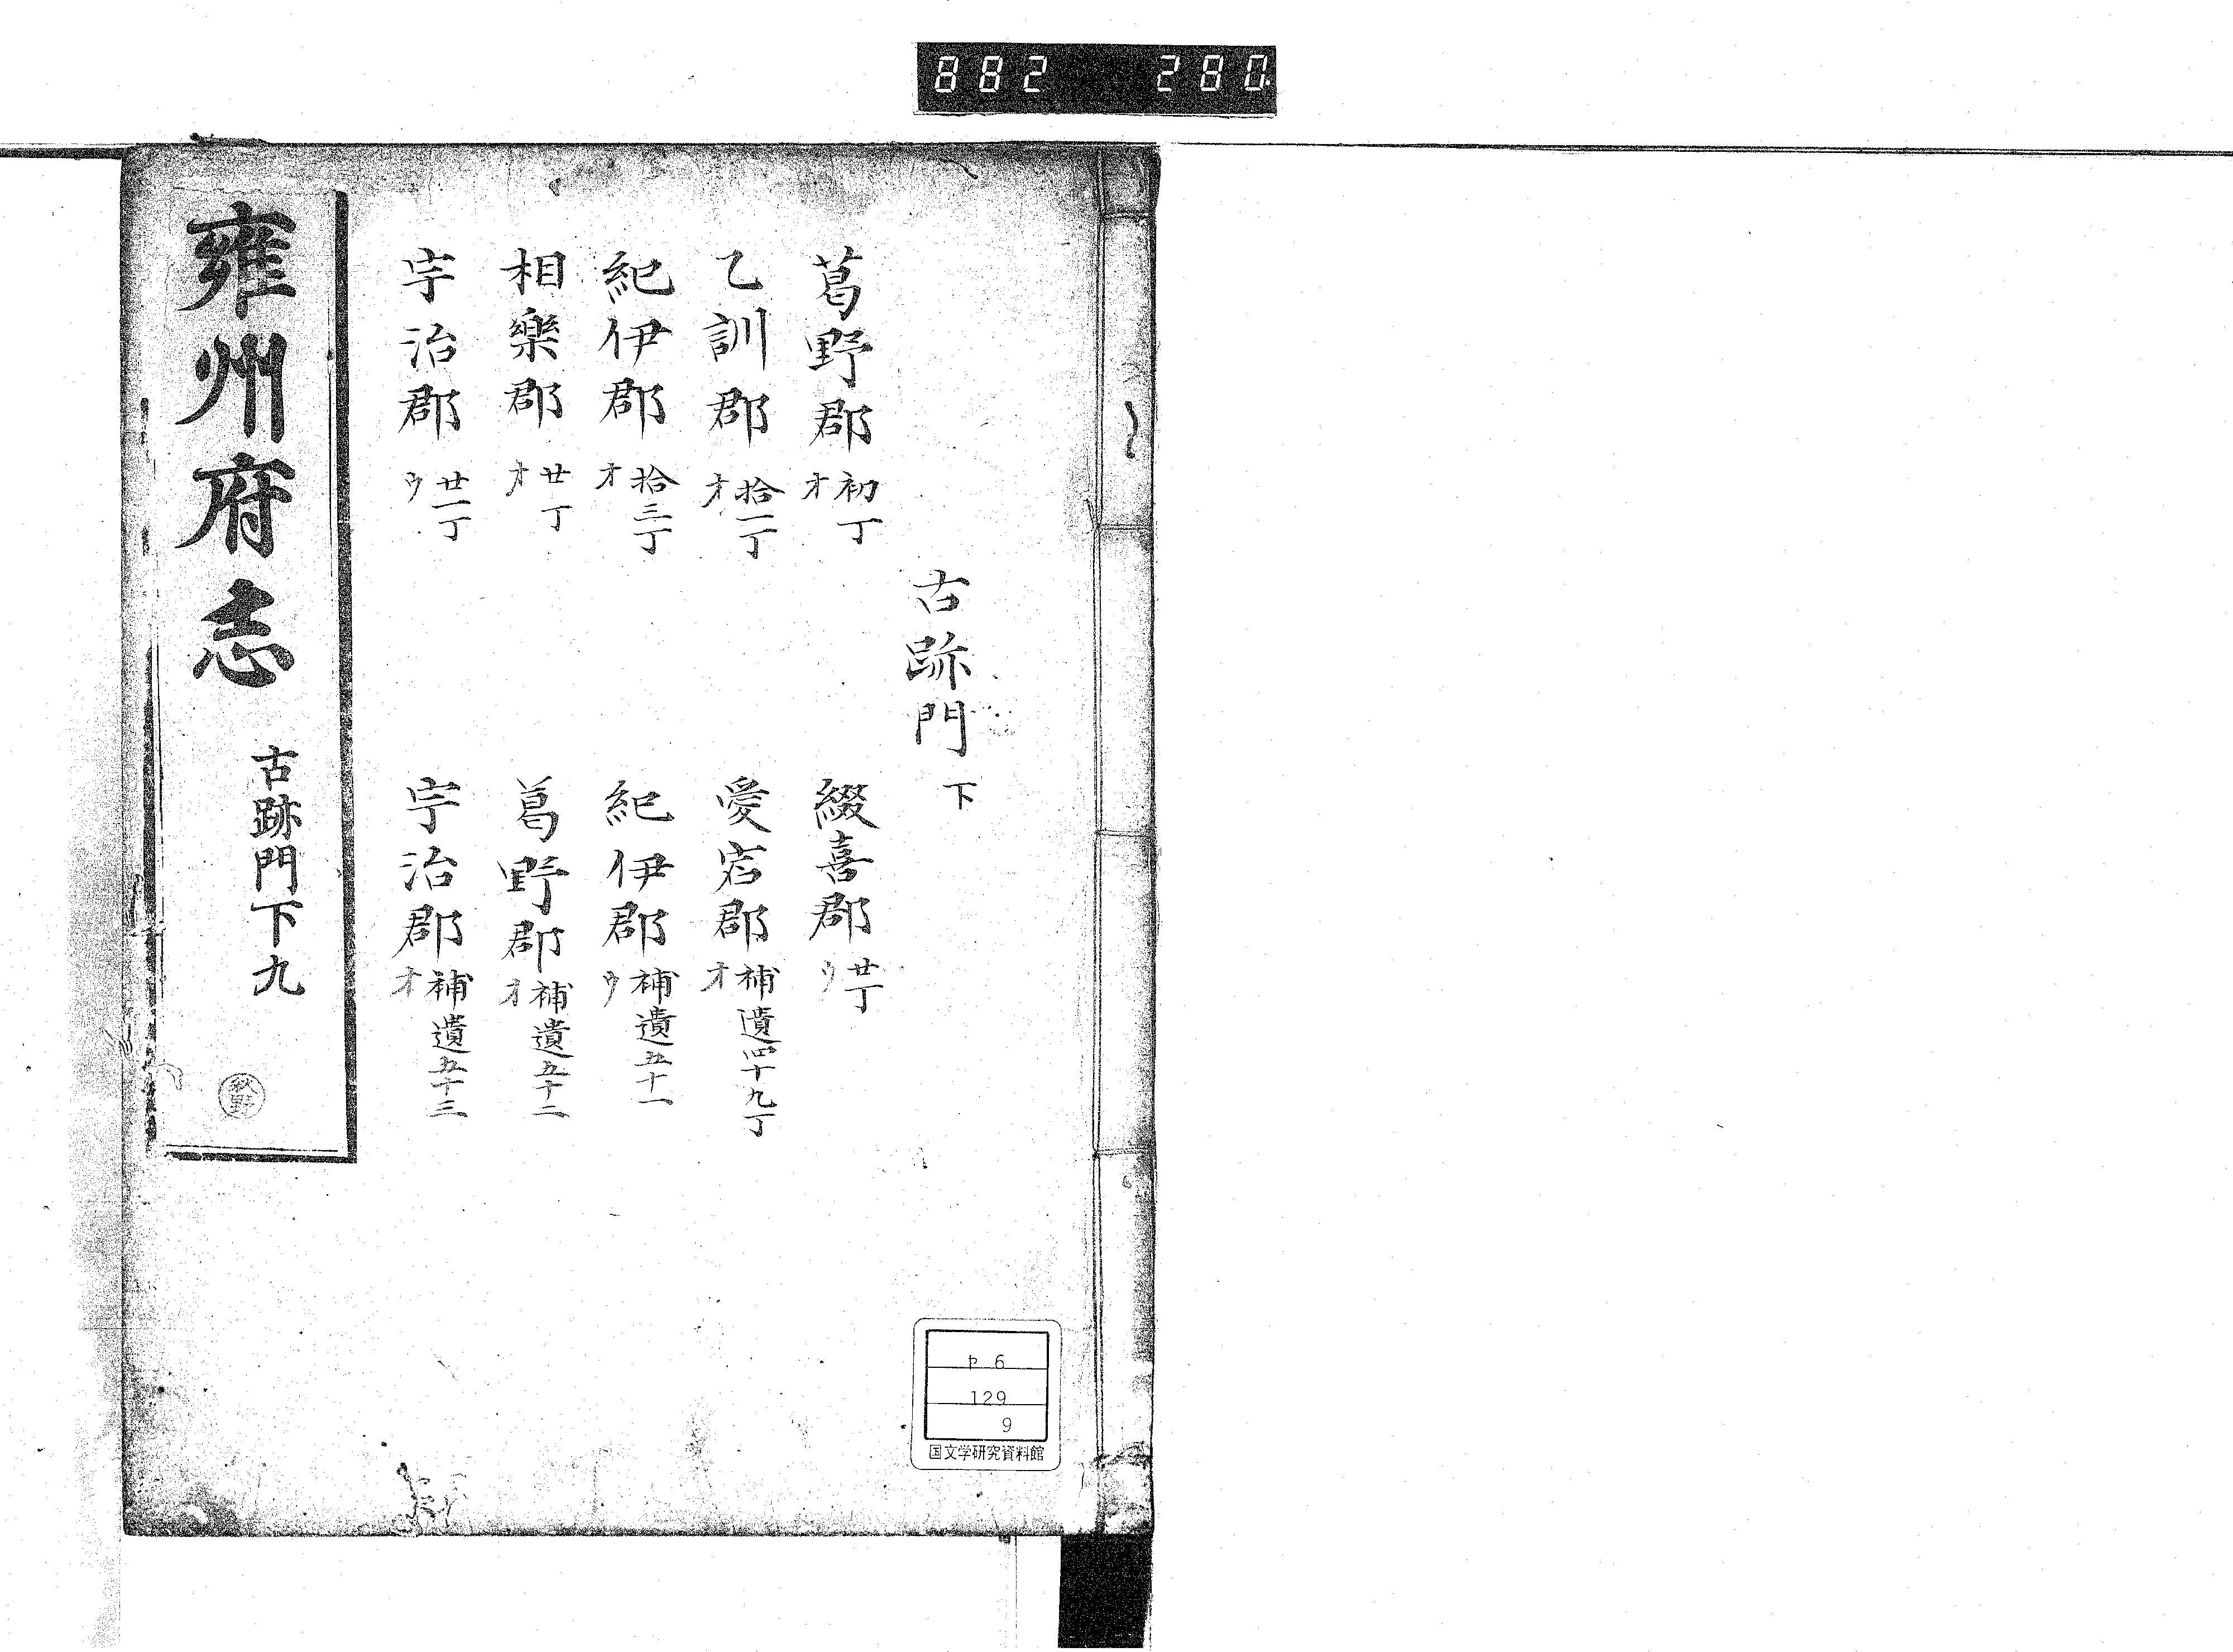 882 280
古跡門 下
葛野郡 初丁オ
乙訓郡 拾一丁オ
紀伊郡 拾三丁オ
相樂郡 廿丁オ
宇治郡 廿一丁ウ
綴喜郡 廿丁ウ
愛宕郡 補遺四十九丁オ
紀伊郡 補遺五十一ウ
葛野郡 補遺五十二オ
宇治郡 補遺五十三オ
雍州府志 古跡門下九
ヤ6
129
9
国文学研究資料館